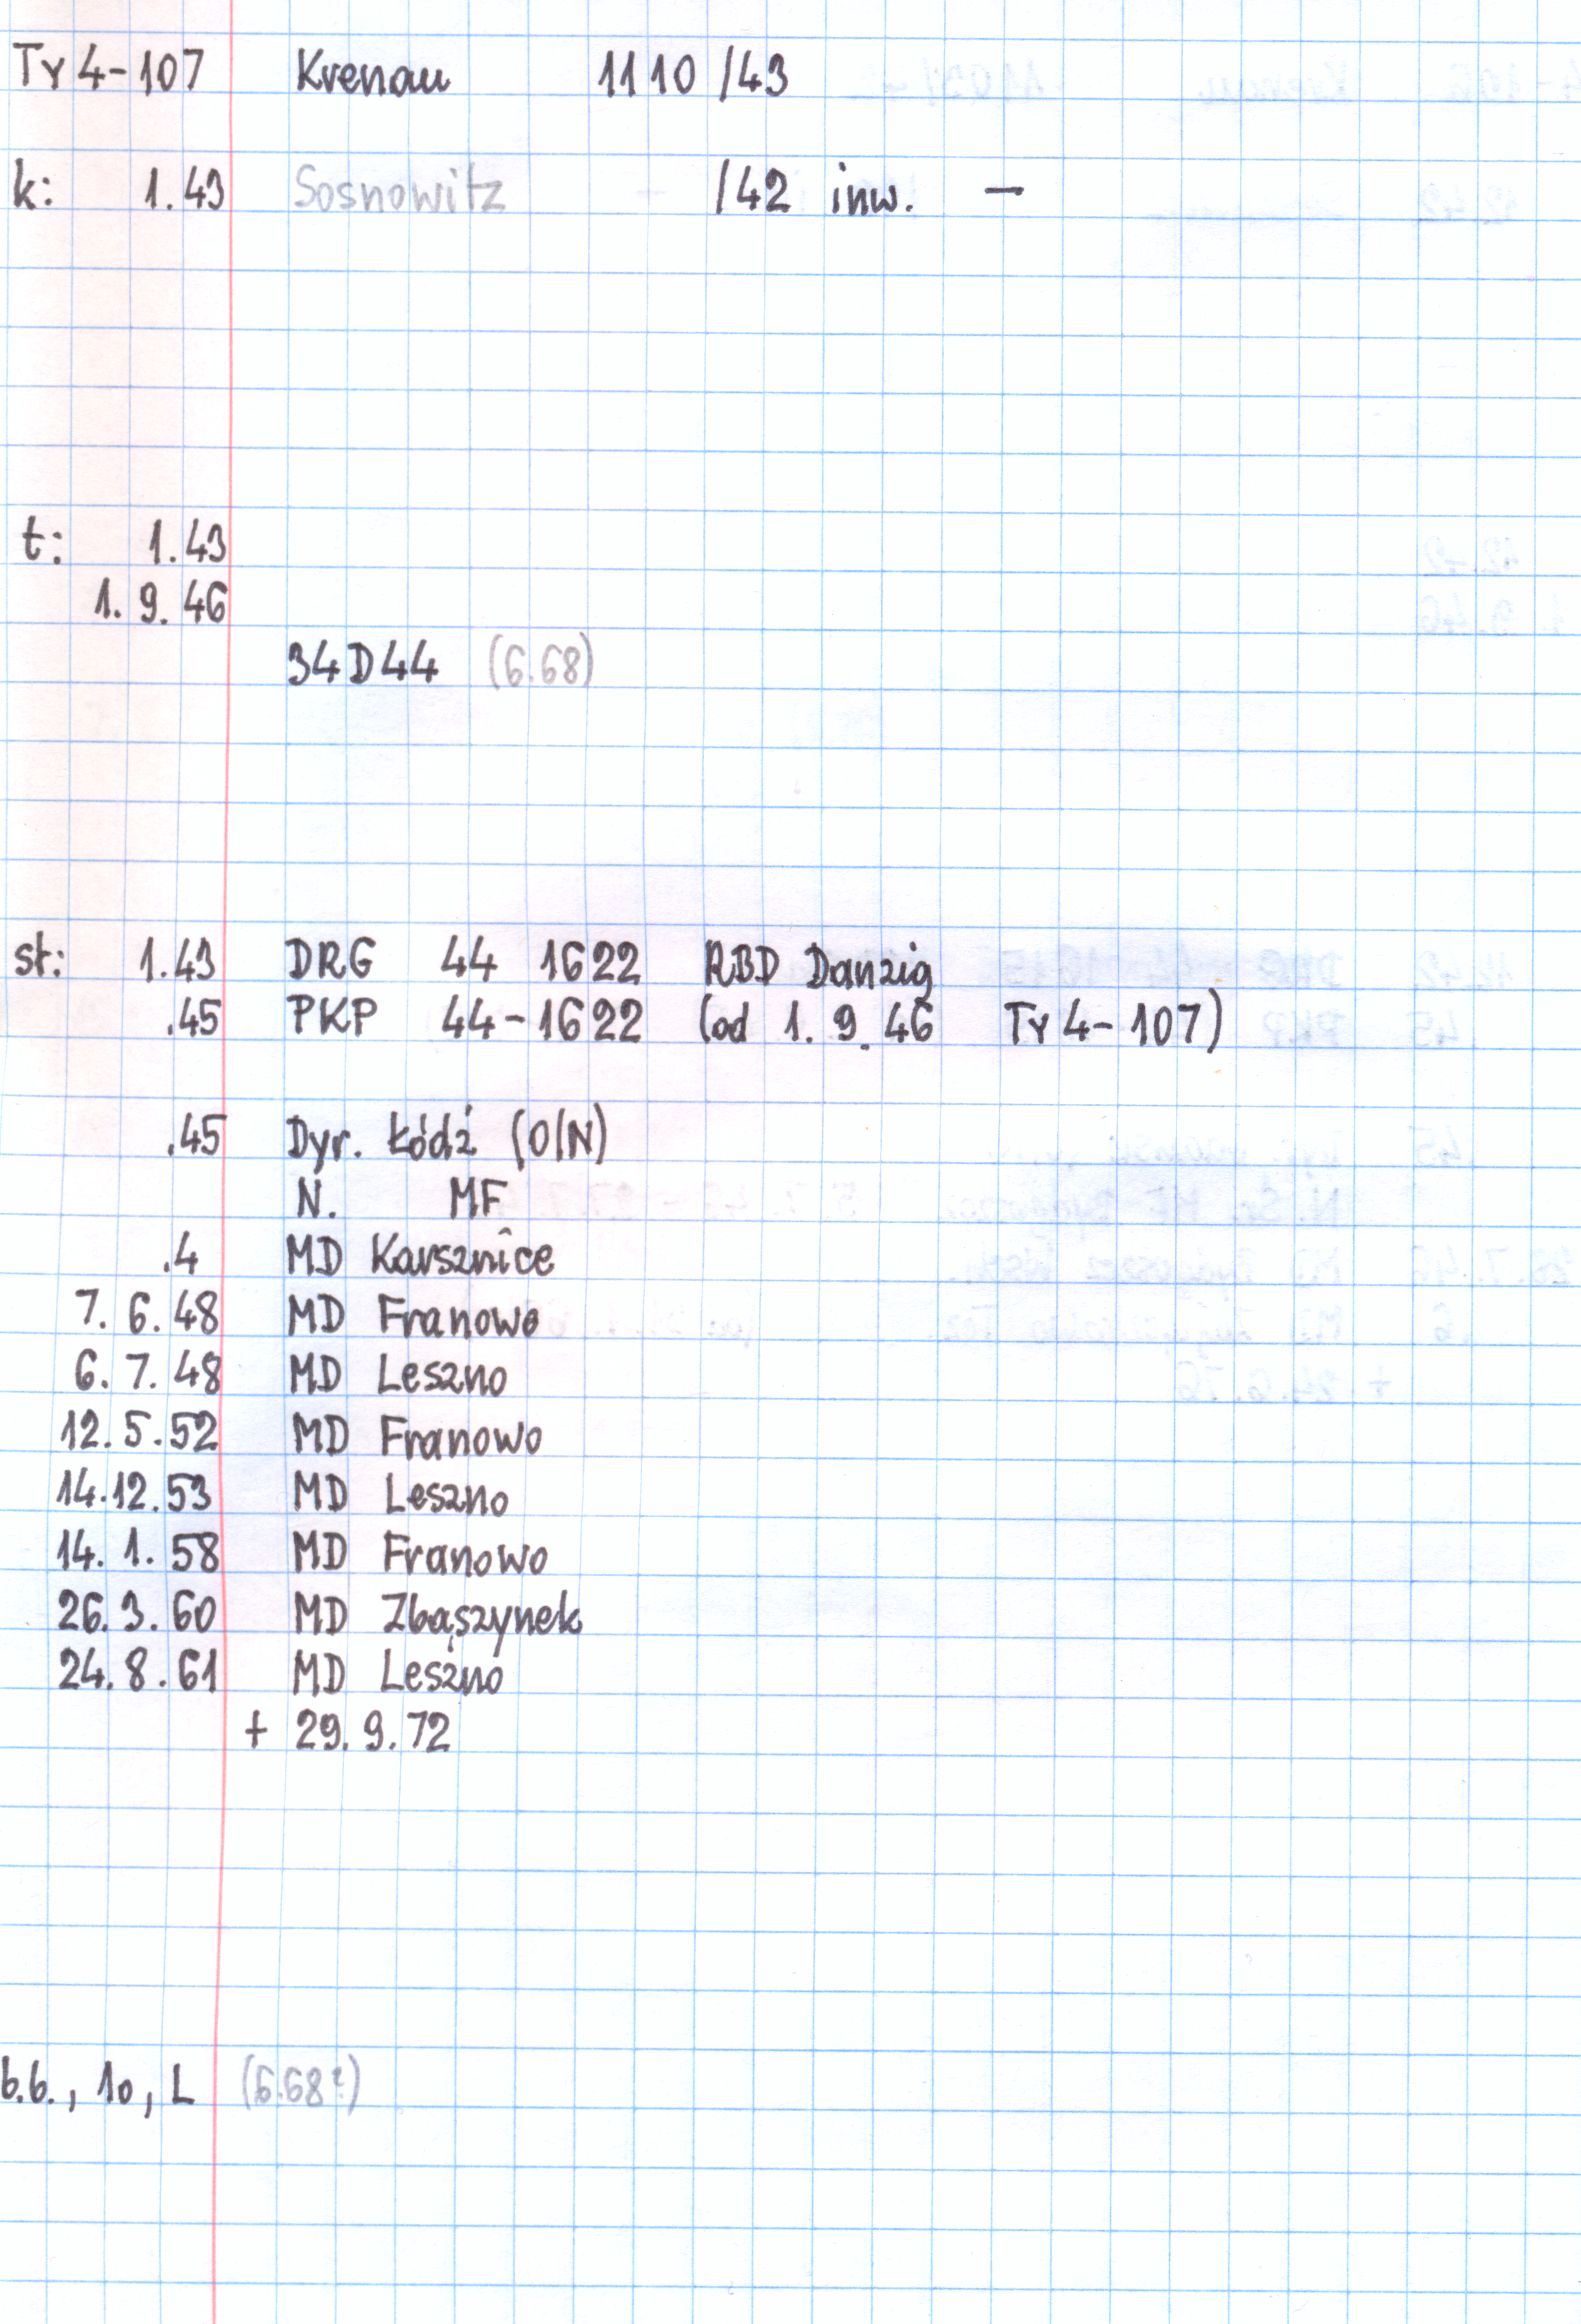 Ty 4-107 Krenau 1110 /43
k: 1.43 Sosnowitz /42 inw. —
t: 1.43
1. 9. 46
34D44 (6.68)
st: 1.43 DRG 44 1622 RBD Danzig
.45 PKP 44-1622 (od 1. 9. 46 Ty 4-107)
.45 Dyr. Łódź (O/N)
N. MF
.4 MD Karsznice
7. 6. 48 MD Franowo
6. 7. 48 MD Leszno
12. 5. 52 MD Franowo
14.12.53 MD Leszno
14. 1. 58 MD Franowo
26. 3. 60 MD Zbąszynek
24. 8. 61 MD Leszno
+ 29. 9. 72
b.b., 10, L (6.68?)